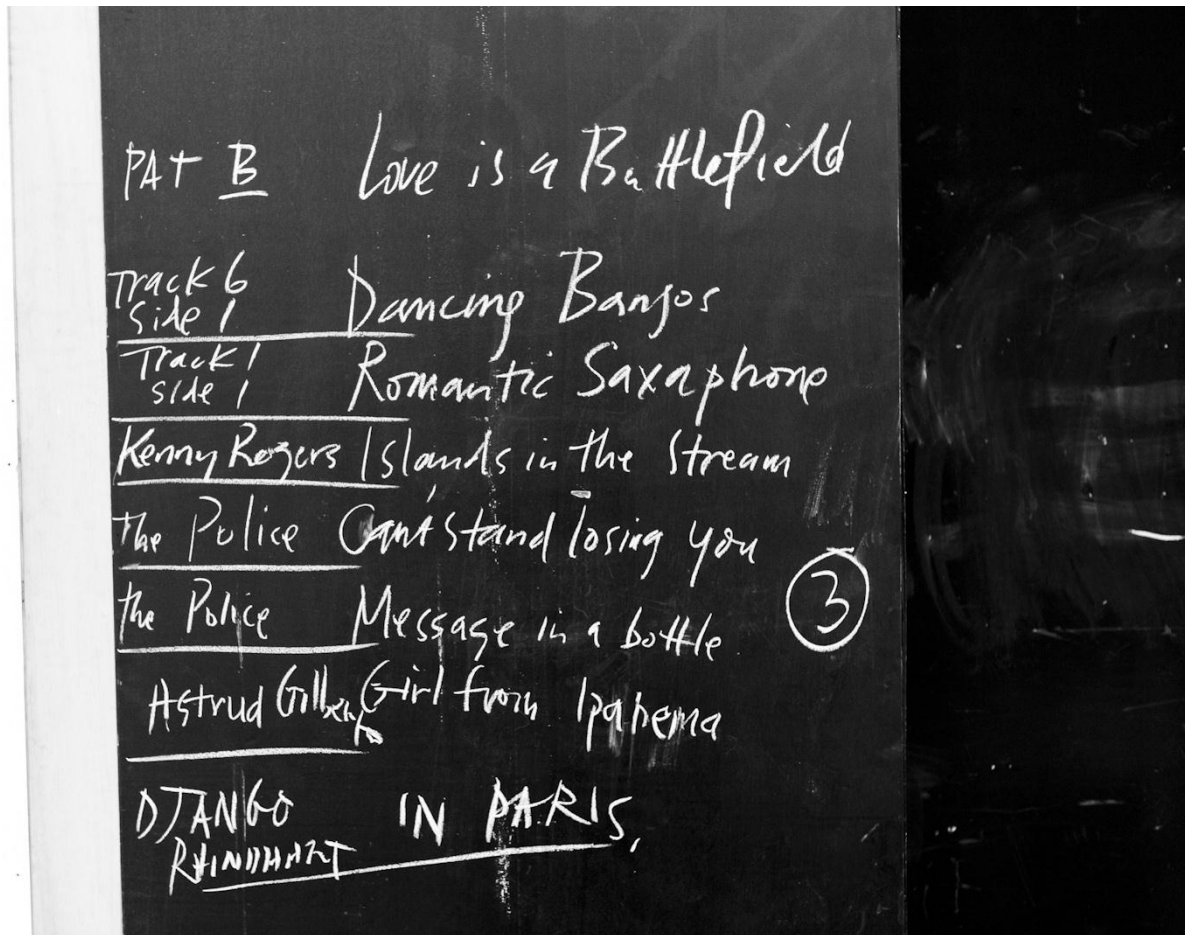 PAT B Love is a Battlefield
Track 6
Side 1 Dancing Banjos
Track 1
side 1 Romantic Saxaphone
Kenny Rogers Islands in the Stream
The Police Can't stand losing you
the Police Message in a bottle
3
Astrud Gilberto Girl from Ipanema
DJANGO IN PARIS,
RHINDHART